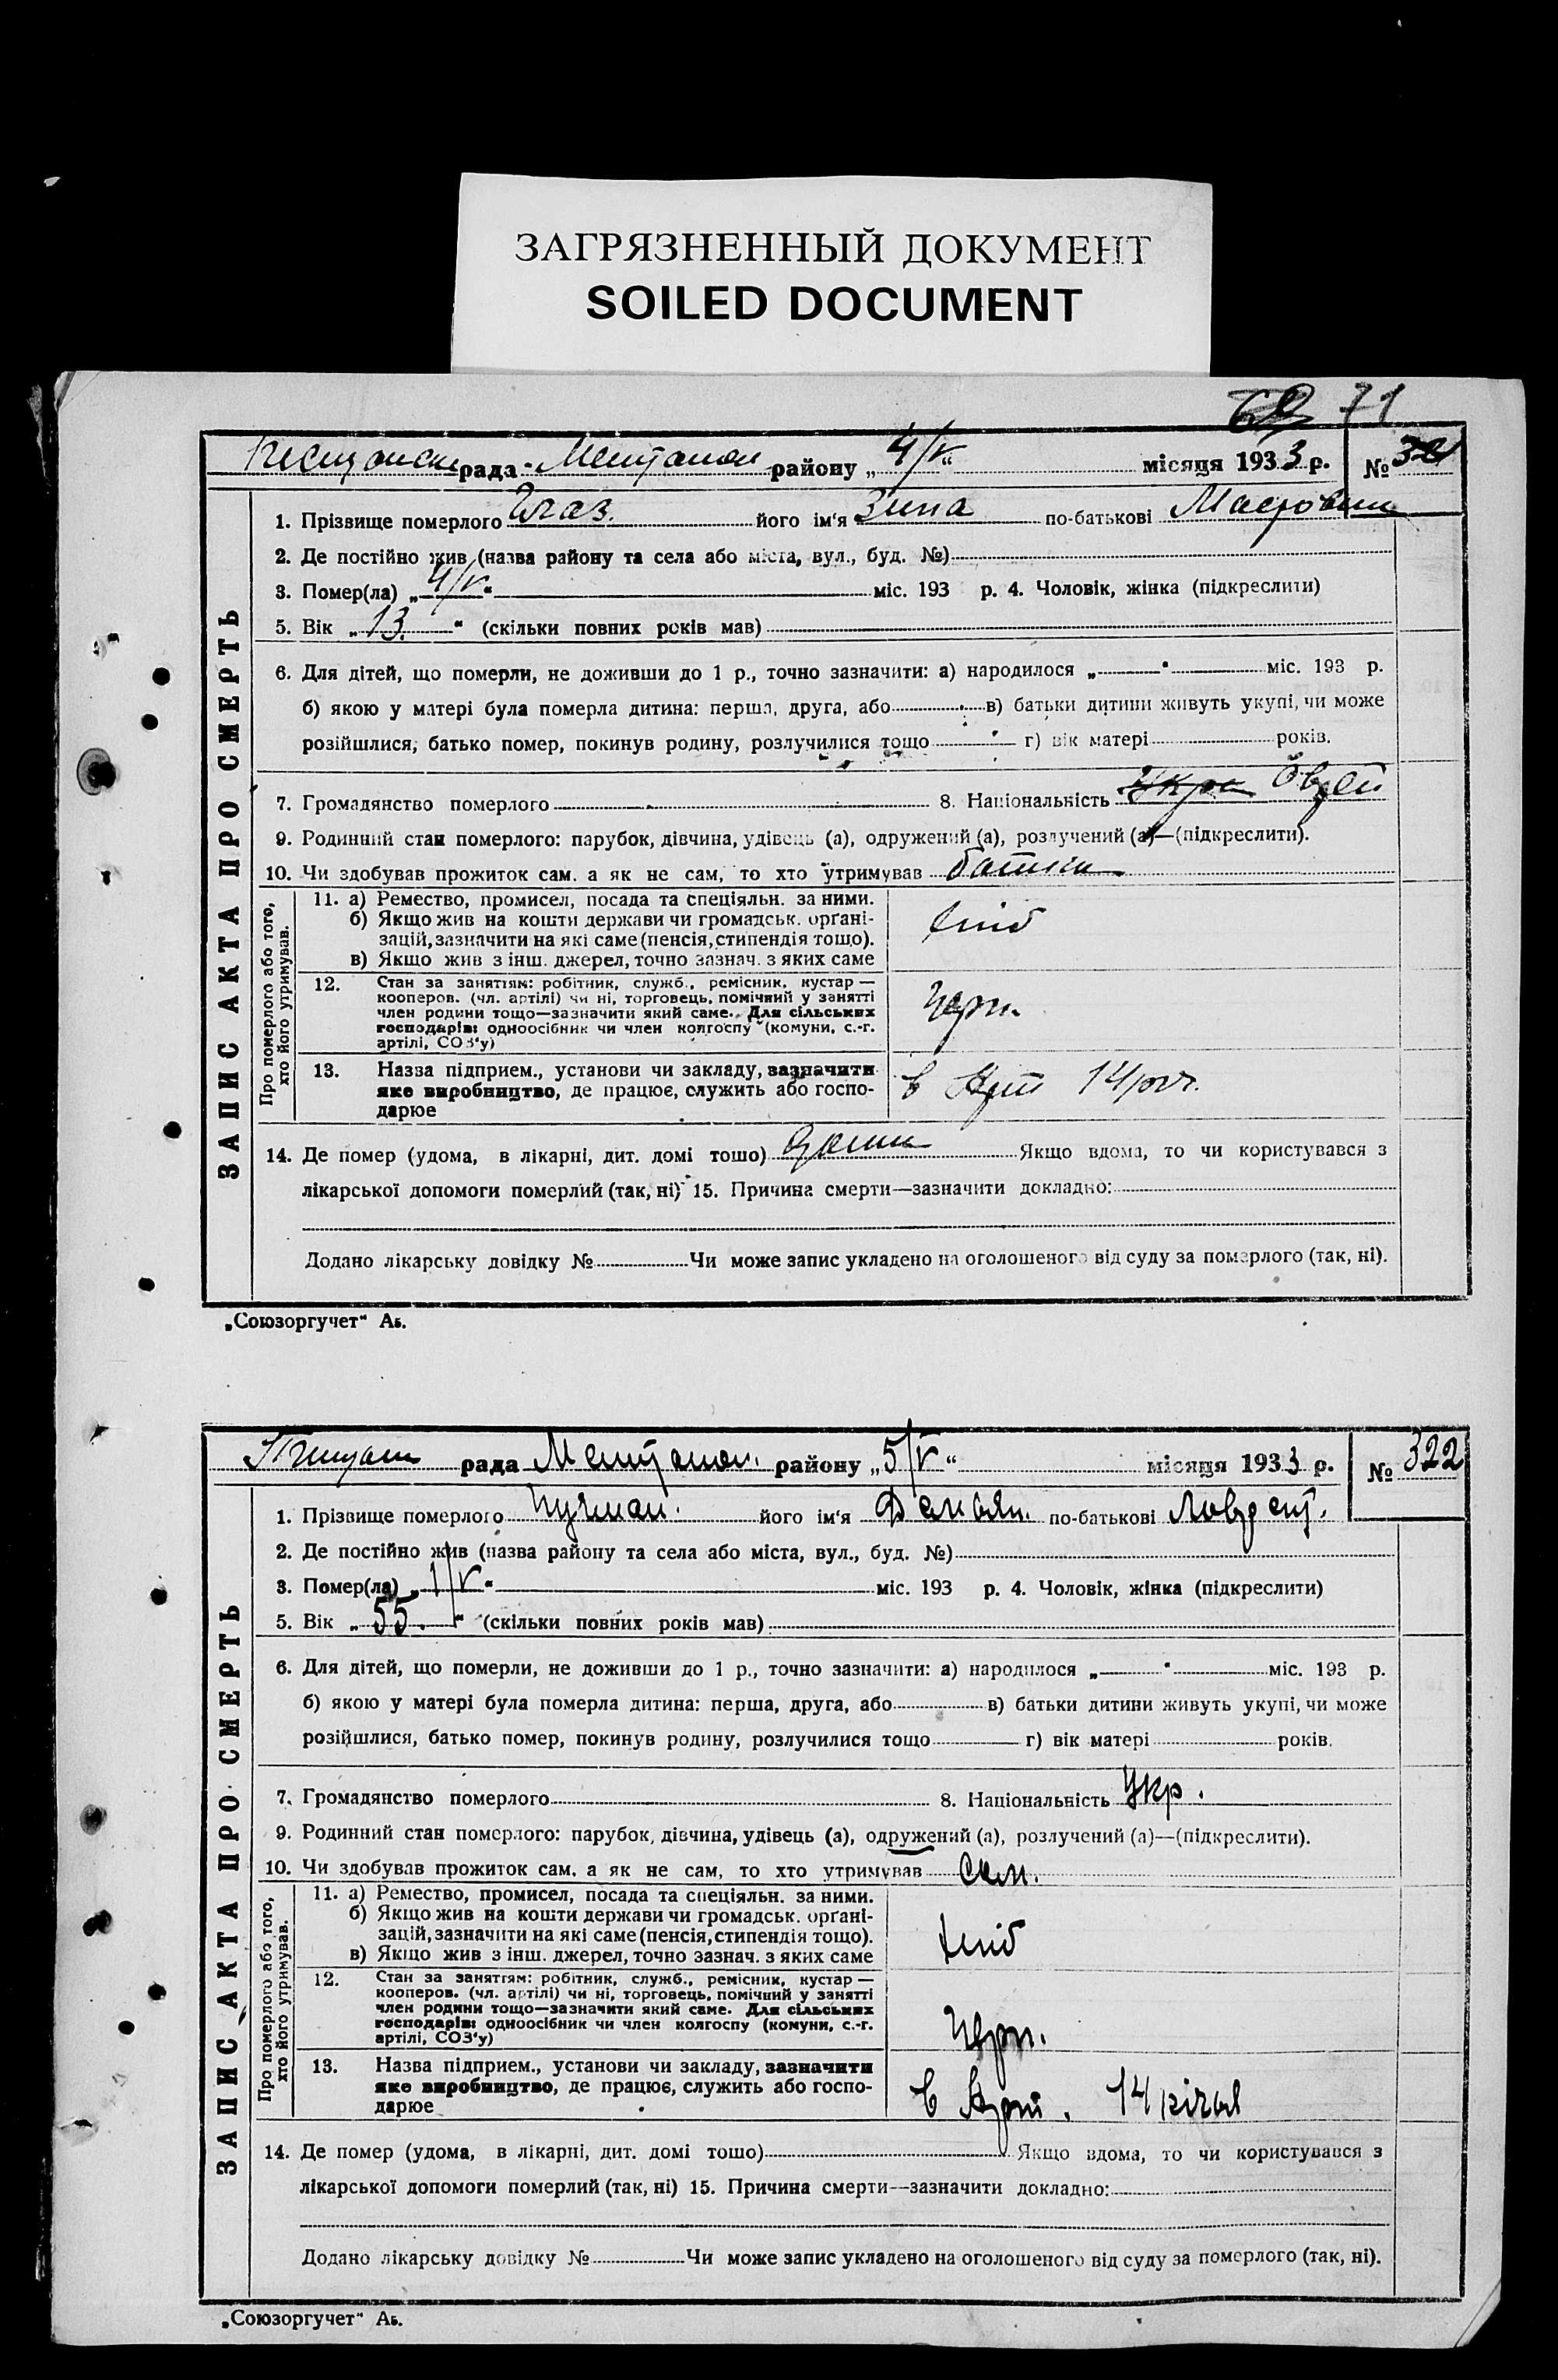 ЗАГРЯЗНЕННЫЙ ДОКУМЕНТ
SOILED DOCUMENT
71
рада району „4/V“ місяця 1933 р. №
ЗАПИС АКТА ПРО СМЕРТЬ
1. Прізвище померлого Глаз. його ім'я Зина по-батькові
2. Де постійно жив (назва району та села або міста, вул., буд. №)
3. Помер(ла) „4/V“ міс. 193 р. 4. Чоловік, жінка (підкреслити)
5. Вік „13.“ (скільки повних років мав)
6. Для дітей, що померли, не доживши до 1 р., точно зазначити: а) народилося „ “ міс. 193 р.
б) якою у матері була померла дитина: перша, друга, або в) батьки дитини живуть укупі, чи може
розійшлися, батько помер, покинув родину, розлучилися тощо г) вік матері років.
7. Громадянство померлого 8. Національність
9. Родинний стан померлого: парубок, дівчина, удівець (а), одружений (а), розлучений (а)—(підкреслити).
10. Чи здобував прожиток сам, а як не сам, то хто утримував батьки
Про померлого або того, хто його утримував.
11. а) Ремество, промисел, посада та спеціяльн. за ними.
б) Якщо жив на кошти держави чи громадськ. орґані-
зацій, зазначити на які саме (пенсія, стипендія тощо).
в) Якщо жив з інш. джерел, точно зазнач. з яких саме
хліб
12. Стан за заняттям: робітник, служб., ремісник, кустар —
кооперов. (чл. артілі) чи ні, торговець, помічний у занятті
член родини тощо—зазначити який саме. Для сільських
господарів: одноосібник чи член колгоспу (комуни, с.-г.
артілі, СОЗ'у)
13. Назва підприєм., установи чи закладу, зазначити
яке виробництво, де працює, служить або госпо-
дарює
в Арт 14
14. Де помер (удома, в лікарні, дит. домі тощо) Якщо вдома, то чи користувався з
лікарської допомоги померлий (так, ні) 15. Причина смерти—зазначити докладно:
Додано лікарську довідку № Чи може запис укладено на оголошеного від суду за померлого (так, ні).
„Союзоргучет“ Аб.
рада району „5/V“ місяця 1933 р. № 322
ЗАПИС АКТА ПРО СМЕРТЬ
1. Прізвище померлого його ім'я Демьян. по-батькові
2. Де постійно жив (назва району та села або міста, вул., буд. №)
3. Помер(ла) „1/V“ міс. 193 р. 4. Чоловік, жінка (підкреслити)
5. Вік „55.“ (скільки повних років мав)
6. Для дітей, що померли, не доживши до 1 р., точно зазначити: а) народилося „ “ міс. 193 р.
б) якою у матері була померла дитина: перша, друга, або в) батьки дитини живуть укупі, чи може
розійшлися, батько помер, покинув родину, розлучилися тощо г) вік матері років.
7. Громадянство померлого 8. Національність Укр.
9. Родинний стан померлого: парубок, дівчина, удівець (а), одружений (а), розлучений (а)—(підкреслити).
10. Чи здобував прожиток сам, а як не сам, то хто утримував сам.
Про померлого або того, хто його утримував.
11. а) Ремество, промисел, посада та спеціяльн. за ними.
б) Якщо жив на кошти держави чи громадськ. орґані-
зацій, зазначити на які саме (пенсія, стипендія тощо).
в) Якщо жив з інш. джерел, точно зазнач. з яких саме
хліб
12. Стан за заняттям: робітник, служб., ремісник, кустар —
кооперов. (чл. артілі) чи ні, торговець, помічний у занятті
член родини тощо—зазначити який саме. Для сільських
господарів: одноосібник чи член колгоспу (комуни, с.-г.
артілі, СОЗ'у)
13. Назва підприєм., установи чи закладу, зазначити
яке виробництво, де працює, служить або госпо-
дарює
в Арт. 14 річчя
14. Де помер (удома, в лікарні, дит. домі тощо) Якщо вдома, то чи користувався з
лікарської допомоги померлий (так, ні) 15. Причина смерти—зазначити докладно:
Додано лікарську довідку № Чи може запис укладено на оголошеного від суду за померлого (так, ні).
„Союзоргучет“ Аб.